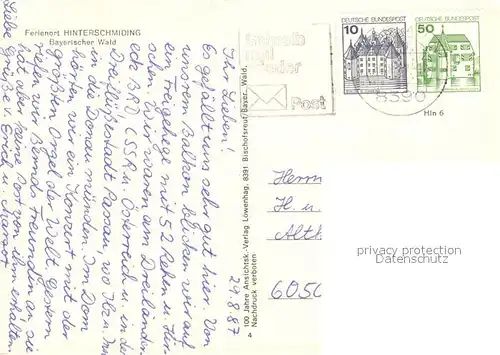 Ferienort HINTERSCHMIDING
Bayerischer Wald
29.8.87
Ihr Lieben!
Es gefällt uns sehr gut hier. Von
unserem Balkon blicken wir auf
ein Freigehege mit 52 Rehen u. Hir-
schen. Wir waren am Dreiländer-
eck BRD CSSR u. Österreich u. in der
Dreiflüßestadt Passau, wo Ilz u. Inn
in die Donau münden. Im Dom
hörten wir ein Konzert mit der
größten Orgel der Welt. Gestern
riefen wir Bernds Freundin an, sie
hat aber keine Post von ihm erhalten.
Liebe Grüße v. Erich u. Margot
100 Jahre Ansichtsk.-Verlag Löwenhag, 8391 Bischofsreut/Bayer. Wald,
Nachdruck verboten
4
Schreib
mal
wieder
Post
10
DEUTSCHE BUNDESPOST
50
DEUTSCHE BUNDESPOST
Hln 6
Herrn
H. u.
Alth
6050
privacy protection
Datenschutz